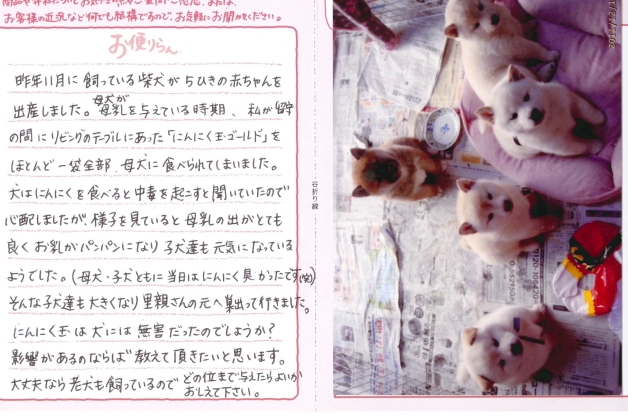 お客様の近況など何でも結構ですので、お気軽にお聞かせください。
お便りらん
昨年11月に飼っている柴犬が5ひきの赤ちゃんを
出産しました。母犬が母乳を与えている時期、私が一瞬
の間にリビングのテーブルにあった「にんにく玉ゴールド」を
ほとんど一袋全部、母犬に食べられてしまいました。
犬はにんにくを食べると中毒を起こすと聞いていたので
心配しましたが、様子を見ていると母乳の出がとても
良くお乳がパンパンになり子犬達も元気になっている
ようでした。(母犬・子犬ともに当日はにんにく臭かったです(笑))
そんな子犬達も大きくなり里親さんの元へ巣出って行きました。
にんにく玉は犬には無害だったのでしょうか?
影響があるのならば教えて頂きたいと思います。
大丈夫なら老犬も飼っているのでどの位まで与えたらよいか
おしえて下さい。
谷折り線